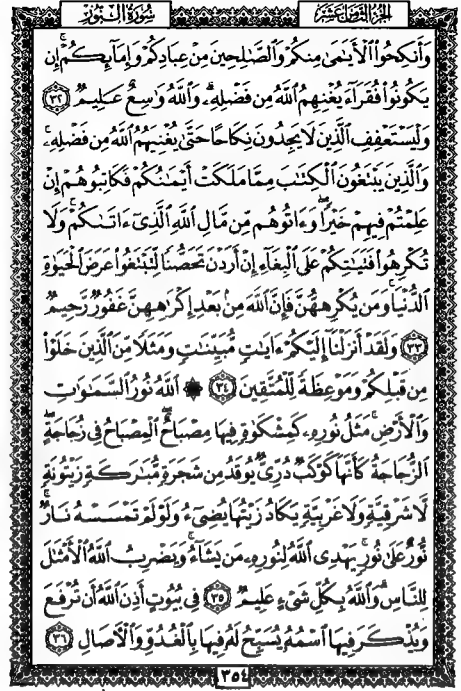 الجزء الثامن عشر سورة النور
وَأَنكِحُوا۟ ٱلْأَيَـٰمَىٰ مِنكُمْ وَٱلصَّـٰلِحِينَ مِنْ عِبَادِكُمْ وَإِمَآئِكُمْ ۚ إِن
يَكُونُوا۟ فُقَرَآءَ يُغْنِهِمُ ٱللَّهُ مِن فَضْلِهِۦ ۗ وَٱللَّهُ وَٰسِعٌ عَلِيمٌ ٣٢
وَلْيَسْتَعْفِفِ ٱلَّذِينَ لَا يَجِدُونَ نِكَاحًا حَتَّىٰ يُغْنِيَهُمُ ٱللَّهُ مِن فَضْلِهِۦ ۗ
وَٱلَّذِينَ يَبْتَغُونَ ٱلْكِتَـٰبَ مِمَّا مَلَكَتْ أَيْمَـٰنُكُمْ فَكَاتِبُوهُمْ إِنْ
عَلِمْتُمْ فِيهِمْ خَيْرًا ۖ وَءَاتُوهُم مِّن مَّالِ ٱللَّهِ ٱلَّذِىٓ ءَاتَىٰكُمْ ۚ وَلَا
تُكْرِهُوا۟ فَتَيَـٰتِكُمْ عَلَى ٱلْبِغَآءِ إِنْ أَرَدْنَ تَحَصُّنًا لِّتَبْتَغُوا۟ عَرَضَ ٱلْحَيَوٰةِ
ٱلدُّنْيَا ۚ وَمَن يُكْرِههُّنَّ فَإِنَّ ٱللَّهَ مِنۢ بَعْدِ إِكْرَٰهِهِنَّ غَفُورٌ رَّحِيمٌ
٣٣ وَلَقَدْ أَنزَلْنَآ إِلَيْكُمْ ءَايَـٰتٍ مُّبَيِّنَـٰتٍ وَمَثَلًا مِّنَ ٱلَّذِينَ خَلَوْا۟
مِن قَبْلِكُمْ وَمَوْعِظَةً لِّلْمُتَّقِينَ ٣٤ ۞ ٱللَّهُ نُورُ ٱلسَّمَـٰوَٰتِ
وَٱلْأَرْضِ ۚ مَثَلُ نُورِهِۦ كَمِشْكَوٰةٍ فِيهَا مِصْبَاحٌ ۖ ٱلْمِصْبَاحُ فِى زُجَاجَةٍ ۖ
ٱلزُّجَاجَةُ كَأَنَّهَا كَوْكَبٌ دُرِّىٌّ يُوقَدُ مِن شَجَرَةٍ مُّبَـٰرَكَةٍ زَيْتُونَةٍ
لَّا شَرْقِيَّةٍ وَلَا غَرْبِيَّةٍ يَكَادُ زَيْتُهَا يُضِىٓءُ وَلَوْ لَمْ تَمْسَسْهُ نَارٌ ۚ
نُّورٌ عَلَىٰ نُورٍ ۗ يَهْدِى ٱللَّهُ لِنُورِهِۦ مَن يَشَآءُ ۚ وَيَضْرِبُ ٱللَّهُ ٱلْأَمْثَـٰلَ
لِلنَّاسِ ۗ وَٱللَّهُ بِكُلِّ شَىْءٍ عَلِيمٌ ٣٥ فِى بُيُوتٍ أَذِنَ ٱللَّهُ أَن تُرْفَعَ
وَيُذْكَرَ فِيهَا ٱسْمُهُۥ يُسَبِّحُ لَهُۥ فِيهَا بِٱلْغُدُوِّ وَٱلْـَٔاصَالِ ٣٦
٣٥٤